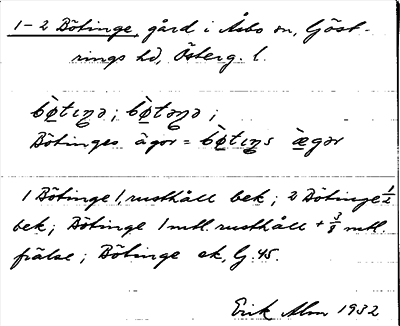 1-2 Bötinge, gård i Åsbo sn, Göst-
rings hd, Österg. l.
bø̀tıŋə; bø̀təŋə;
Bötinges ägor = bø̀tıŋs æ̀gər
1 Bötinge 1, rusthåll bek; 2 Bötinge ½
bek; Bötinge 1 mtl. rusthåll + 3/8 mtl.
frälse; Bötinge ek, G. 45.
Erik Alm 1932